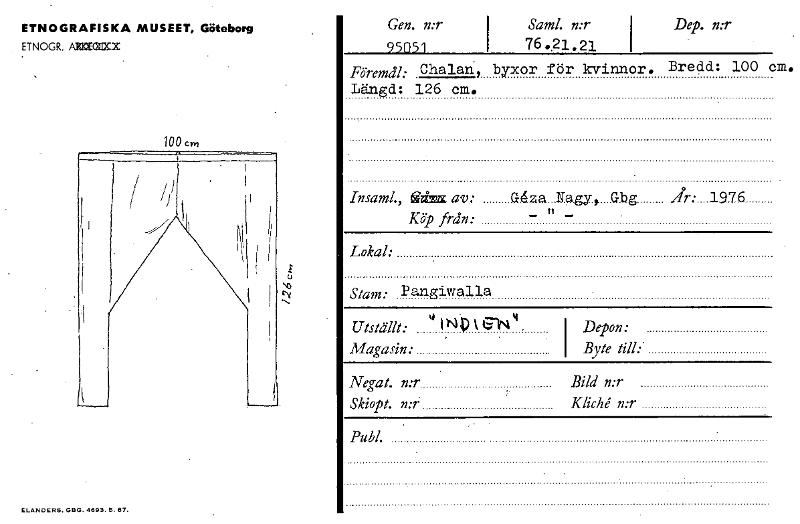 ETNOGRAFISKA MUSEET, Göteborg
ETNOGR.
Gen. n:r
Saml. n:r
Dep. n:r
95051
76.21.21
Föremål: Chalan, byxor för kvinnor. Bredd: 100 cm.
Längd: 126 cm.
100 cm
126 cm
Insaml., av: Géza Nagy, Gbg År: 1976
Köp från: - " -
Lokal:
Stam: Pangiwalla
Utställt: "INDIEN" Depon:
Magasin: Byte till:
Negat. n:r Bild n:r
Skiopt. n:r Kliché n:r
Publ.
ELANDERS, GBG. 4693. 5. 67.